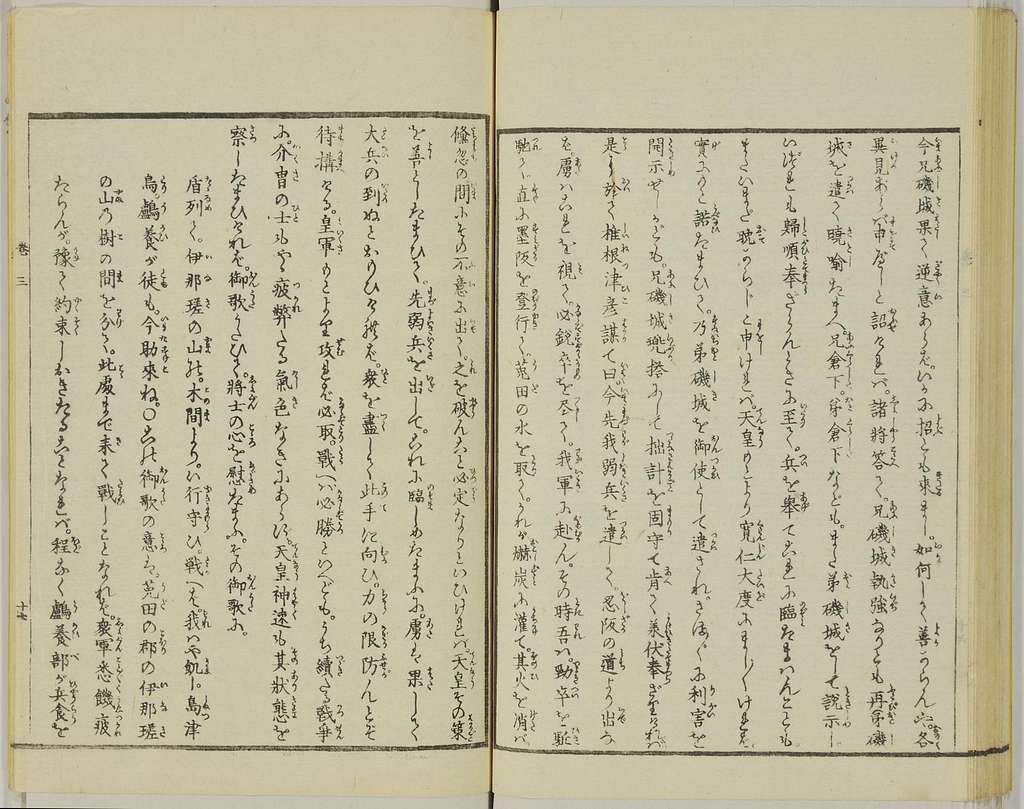 今兄磯城果く逆意あらば。いかに招とも来まじ。如何しく善からん。各
異見あらバ申べしと詔くれバ。諸将答く。兄磯城執強なりとも再弟磯
城を遣く暁喩たまへ。兄倉下。弟倉下なども。まづ弟磯城をして説示し
いづれも帰順奉ざらんときに至く。兵を挙てこれに臨たまハんことも
まだいまだ晩からじと申けれバ。天皇もとより寛仁大度にましくけれバ
実にもと諾たまひく。乃弟磯城を御使として遣され。さまぐに利害を
開示せしかども。兄磯城兜搭にして拙計を固守て肯く承伏奉ざりけれバ
是に於く椎根津彦謀て曰今先我弱兵を遣しく。忍阪の道より出な
ば。虜ハこれを視く。必鋭卒を尽く。我軍に赴ん。その時吾ハ勁卒を駈
馳く直に墨阪を登行く。菟田の水を取く。かれが爀炭に灌て。其火を消バ
倏忽の間にその不意に出く。之を破んこと必定なりといひけれバ。天皇その策
を善としたまひく。先弱兵を出して。これに臨しめたまふに。虜は果しく
大兵の到ぬとおもひけれバ。衆を尽しく此手に向ひ。力の限防んとぞ
待構ける。皇軍もとより攻れバ必取。戦へバ必勝といへども。うち続たる戦争
に。介冑の士もやゝ疲弊たる気色なきにあらず。天皇神速も其状態を
察したまひければ。御歌よみたひく。将士の心を慰たまふ。その御歌に。
盾列く。伊那瑳の山の。木間よりも。い行守ひ。戦へバ。我ハや飢ぬ。島津
鳥。鸕養が徒も。今助来ね。○この御歌の意は。菟田の郡の伊那瑳
の山の樹の間を分く。此処まで来く戦しことなれば。衆軍悉饑疲
たらんが。予く約束しおきたることなれバ。程なく鸕養部が兵食を
巻三
十七